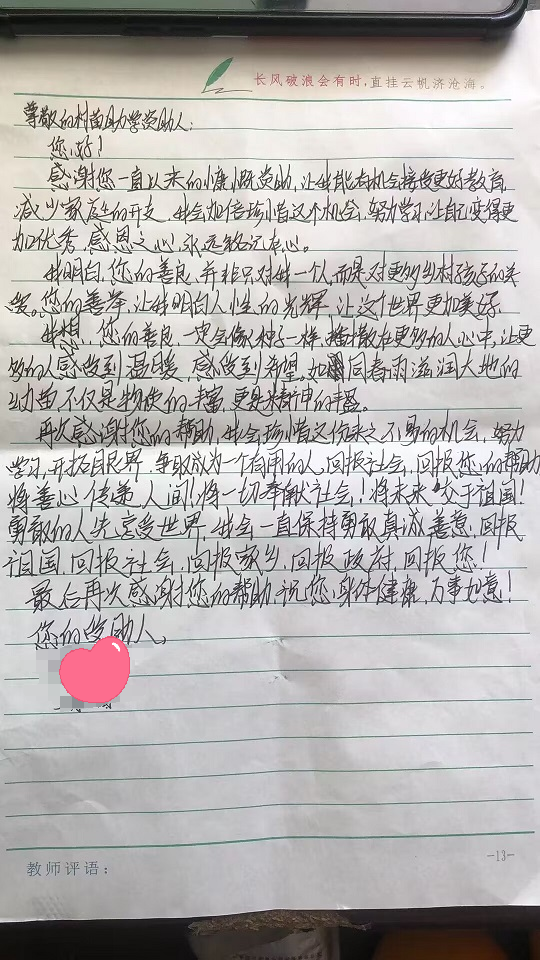 长风破浪会有时,直挂云帆济沧海。
尊敬的村苗助学资助人:
您好!
感谢您一直以来的慷慨资助,让我能有机会接受更好教育,
减少家庭的开支,我会加倍珍惜这个机会,努力学习,让自己变得更
加优秀,感恩之心,永远铭记在心。
我明白,您的善良,并非只对我一个人,而是对更多乡村孩子的关
爱。您的善举,让我明白人性的光辉,让这个世界更加美好。
我想,您的善良,一定会像种子一样,播散在更多的人心中,让更
多的人感受到温暖,感受到希望。如同春雨滋润大地的
幼苗,不仅是物质的丰富,更是精神的丰盈。
再次感谢您的帮助,我会珍惜这份来之不易的机会,努力
学习,开拓眼界,争取成为一个有用的人,回报社会,回报您的帮助
将善心传递人间!将一切奉献社会!将未来交于祖国!
勇敢的人先享受世界,我会一直保持勇敢真诚善意,回报
祖国,回报社会,回报家乡,回报政府,回报您!
最后再次感谢您的帮助,祝您:身体健康,万事如意!
您的受助人,
教师评语:
-13-